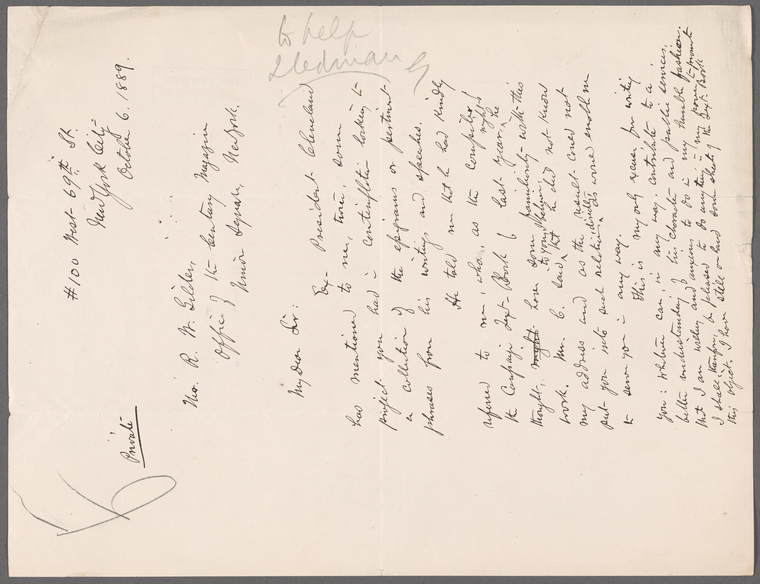 to help
Stedman
Private
#100 West 69th St.
New York City
October 6. 1889.
Mr. R. W. Gilder,
Office of the Century Magazine
Union Square, New York.
My dear Sir:
Ex-President Cleveland
has mentioned to me, twice, some
project you had in contemplation looking to
a collection of the epigrams or pertinent
phrases from his writings and speeches.
He told me that he had kindly
referred to me, who, as the compiler of
the Campaign Text-Book of last year, he
thought, might have some familiarity with this
work. Mr. C. said that he did not know
my address and as the result could not
put you into such relations directly as would enable me
to serve you in any way.
This is my only excuse for writing
you: whatever can, in any way, contribute to a
better understanding of his character and public services
that I am willing and anxious to do in my humble fashion.
I shall, therefore, be pleased to do anything in my power to promote
this object. I have still on hand some sheets of the Text Book